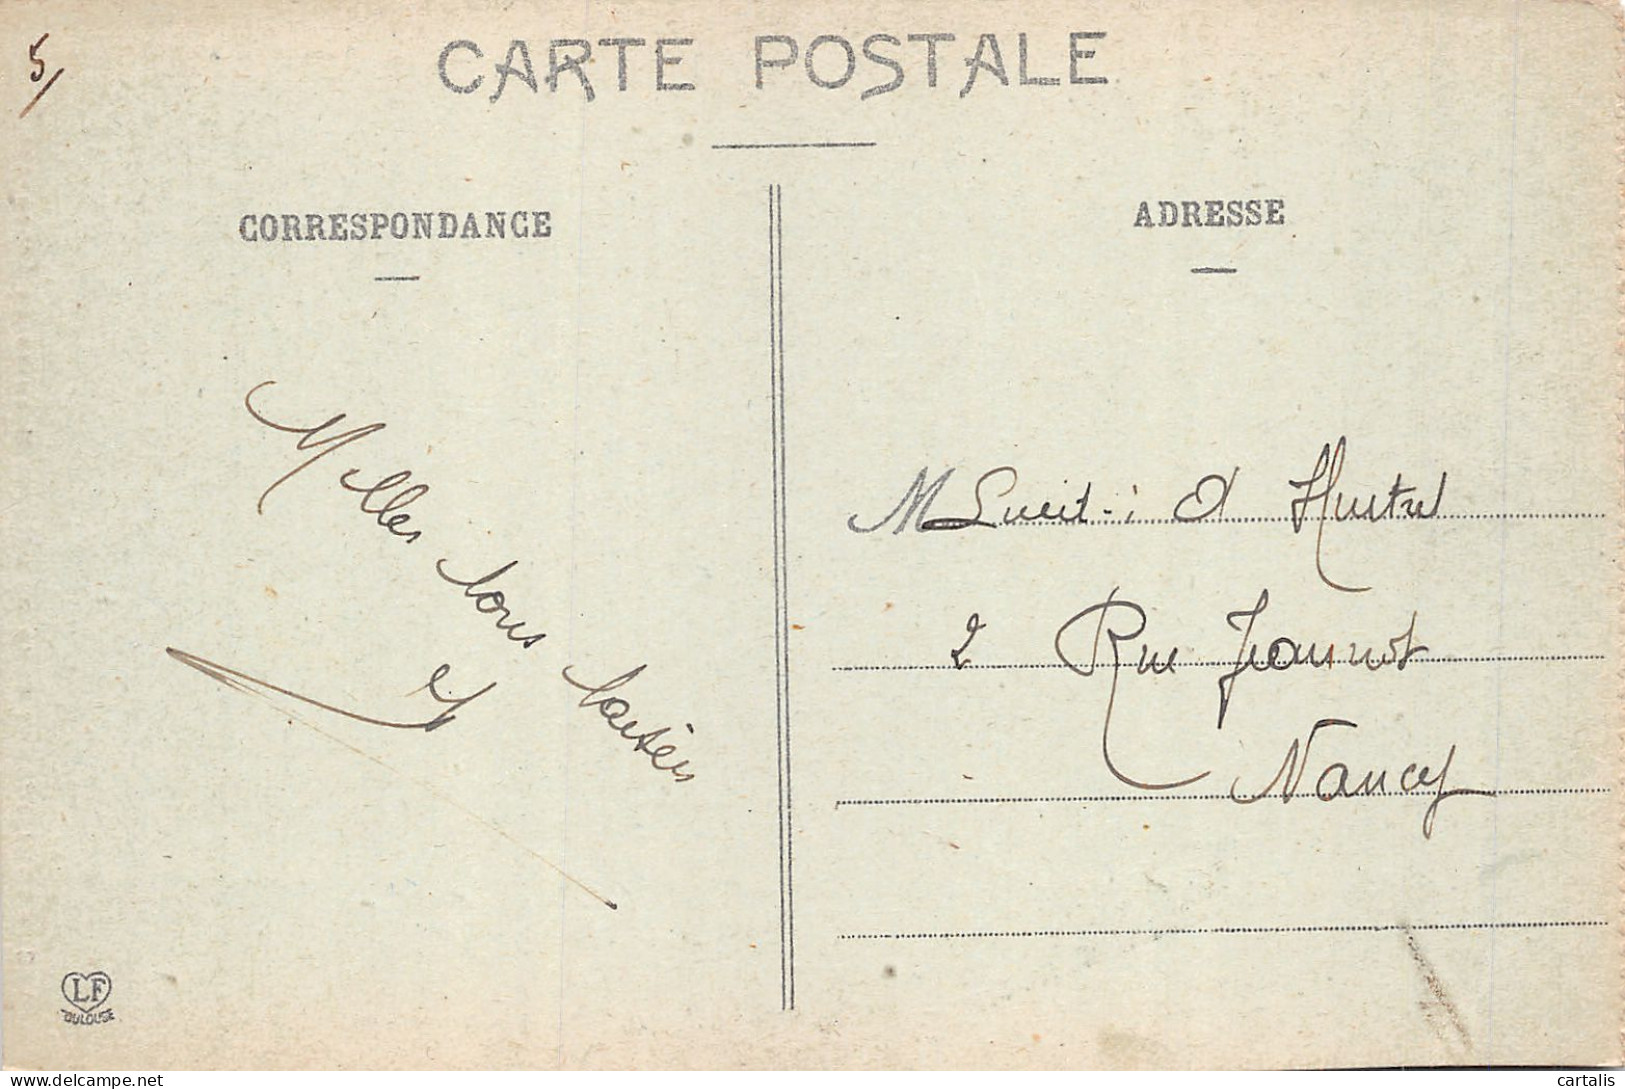 5/
CARTE POSTALE
CORRESPONDANCE
ADRESSE
Milles bons baisers
M
2 Rue Jeannot
Nancy
LF
TOULOUSE
delcampe.net
cartalis